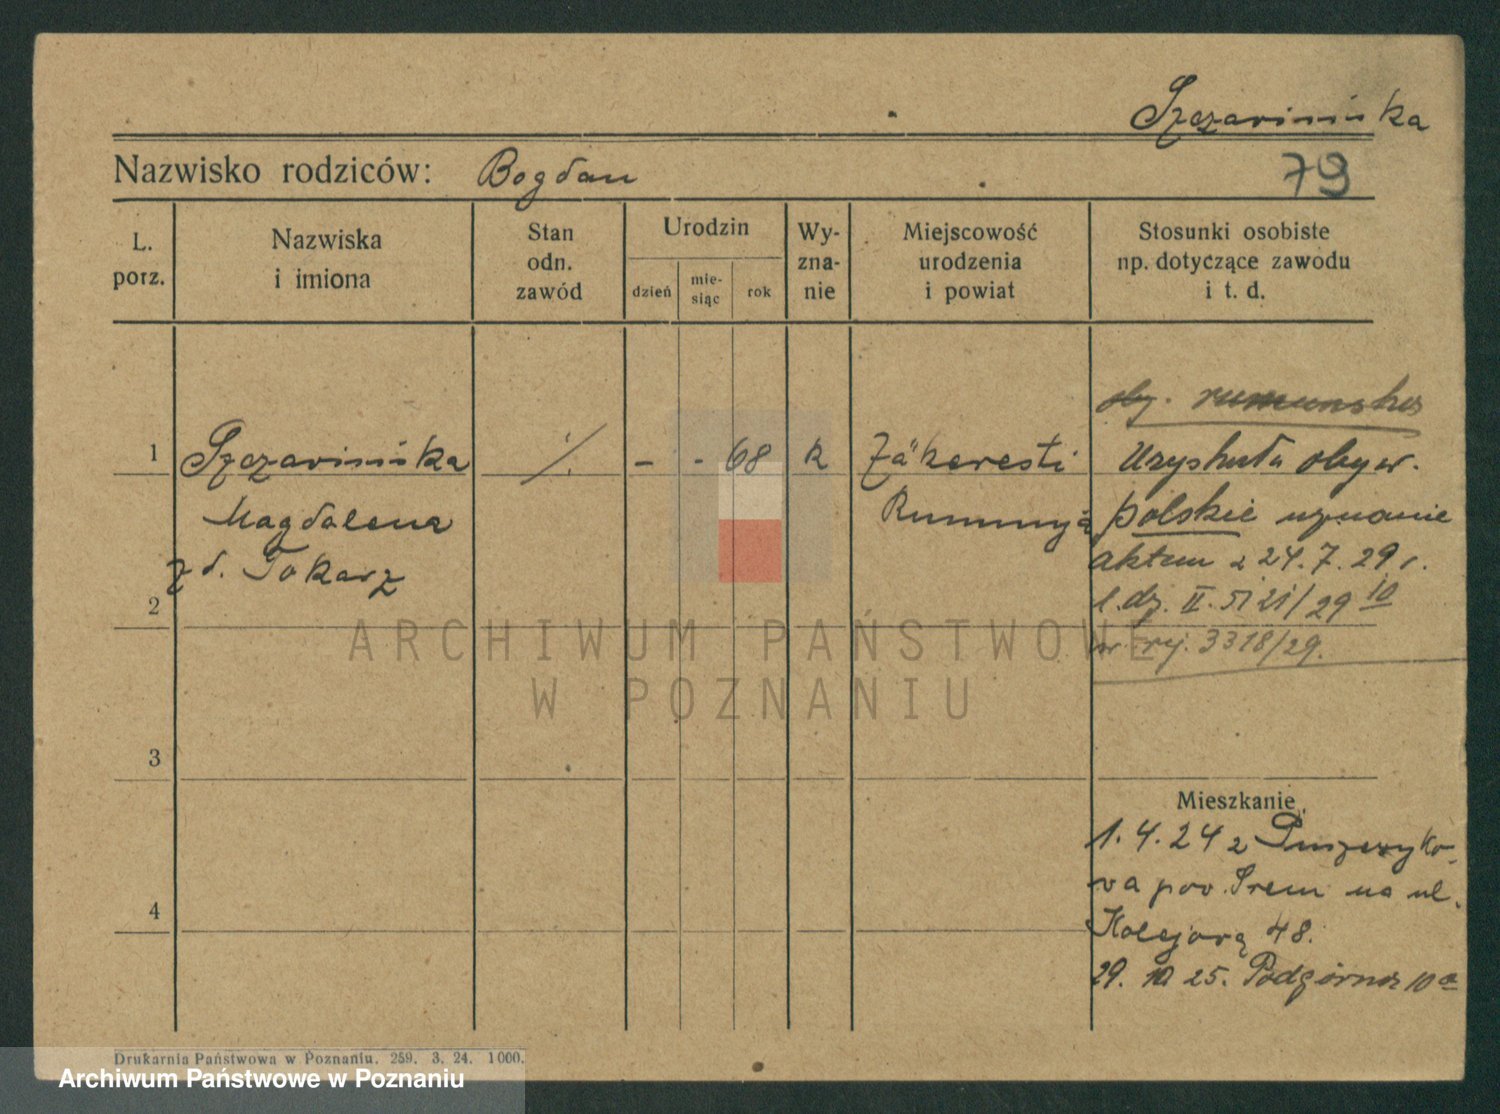 Szczarinińska
Nazwisko rodziców: Bogdan 79
L. porz.
Nazwiska i imiona
Stan odn. zawód
Urodzin
dzień
mie-siąc
rok
Wy-zna-nie
Miejscowość urodzenia i powiat
Stosunki osobiste np. dotyczące zawodu i t. d.
obj. rumuńska
1 - - 68 k Zäkeresti Uzyskała obyw.
Magdalena Rumunja polskie uznanie
zd. Tokarz aktem z 24.7.29 r.
2 l.dz. II. 5121/29 10
nr. rej. 3318/29.
ARCHIWUM PAŃSTWOWE
W POZNANIU
3
Mieszkanie
1.4.24 z Puszczyko-
wa pow. Śrem na ul.
4 Kolejową 48.
29. 10 25. Podgórna 10a
Drukarnia Państwowa w Poznaniu. 259. 3. 24. 1000.
Archiwum Państwowe w Poznaniu